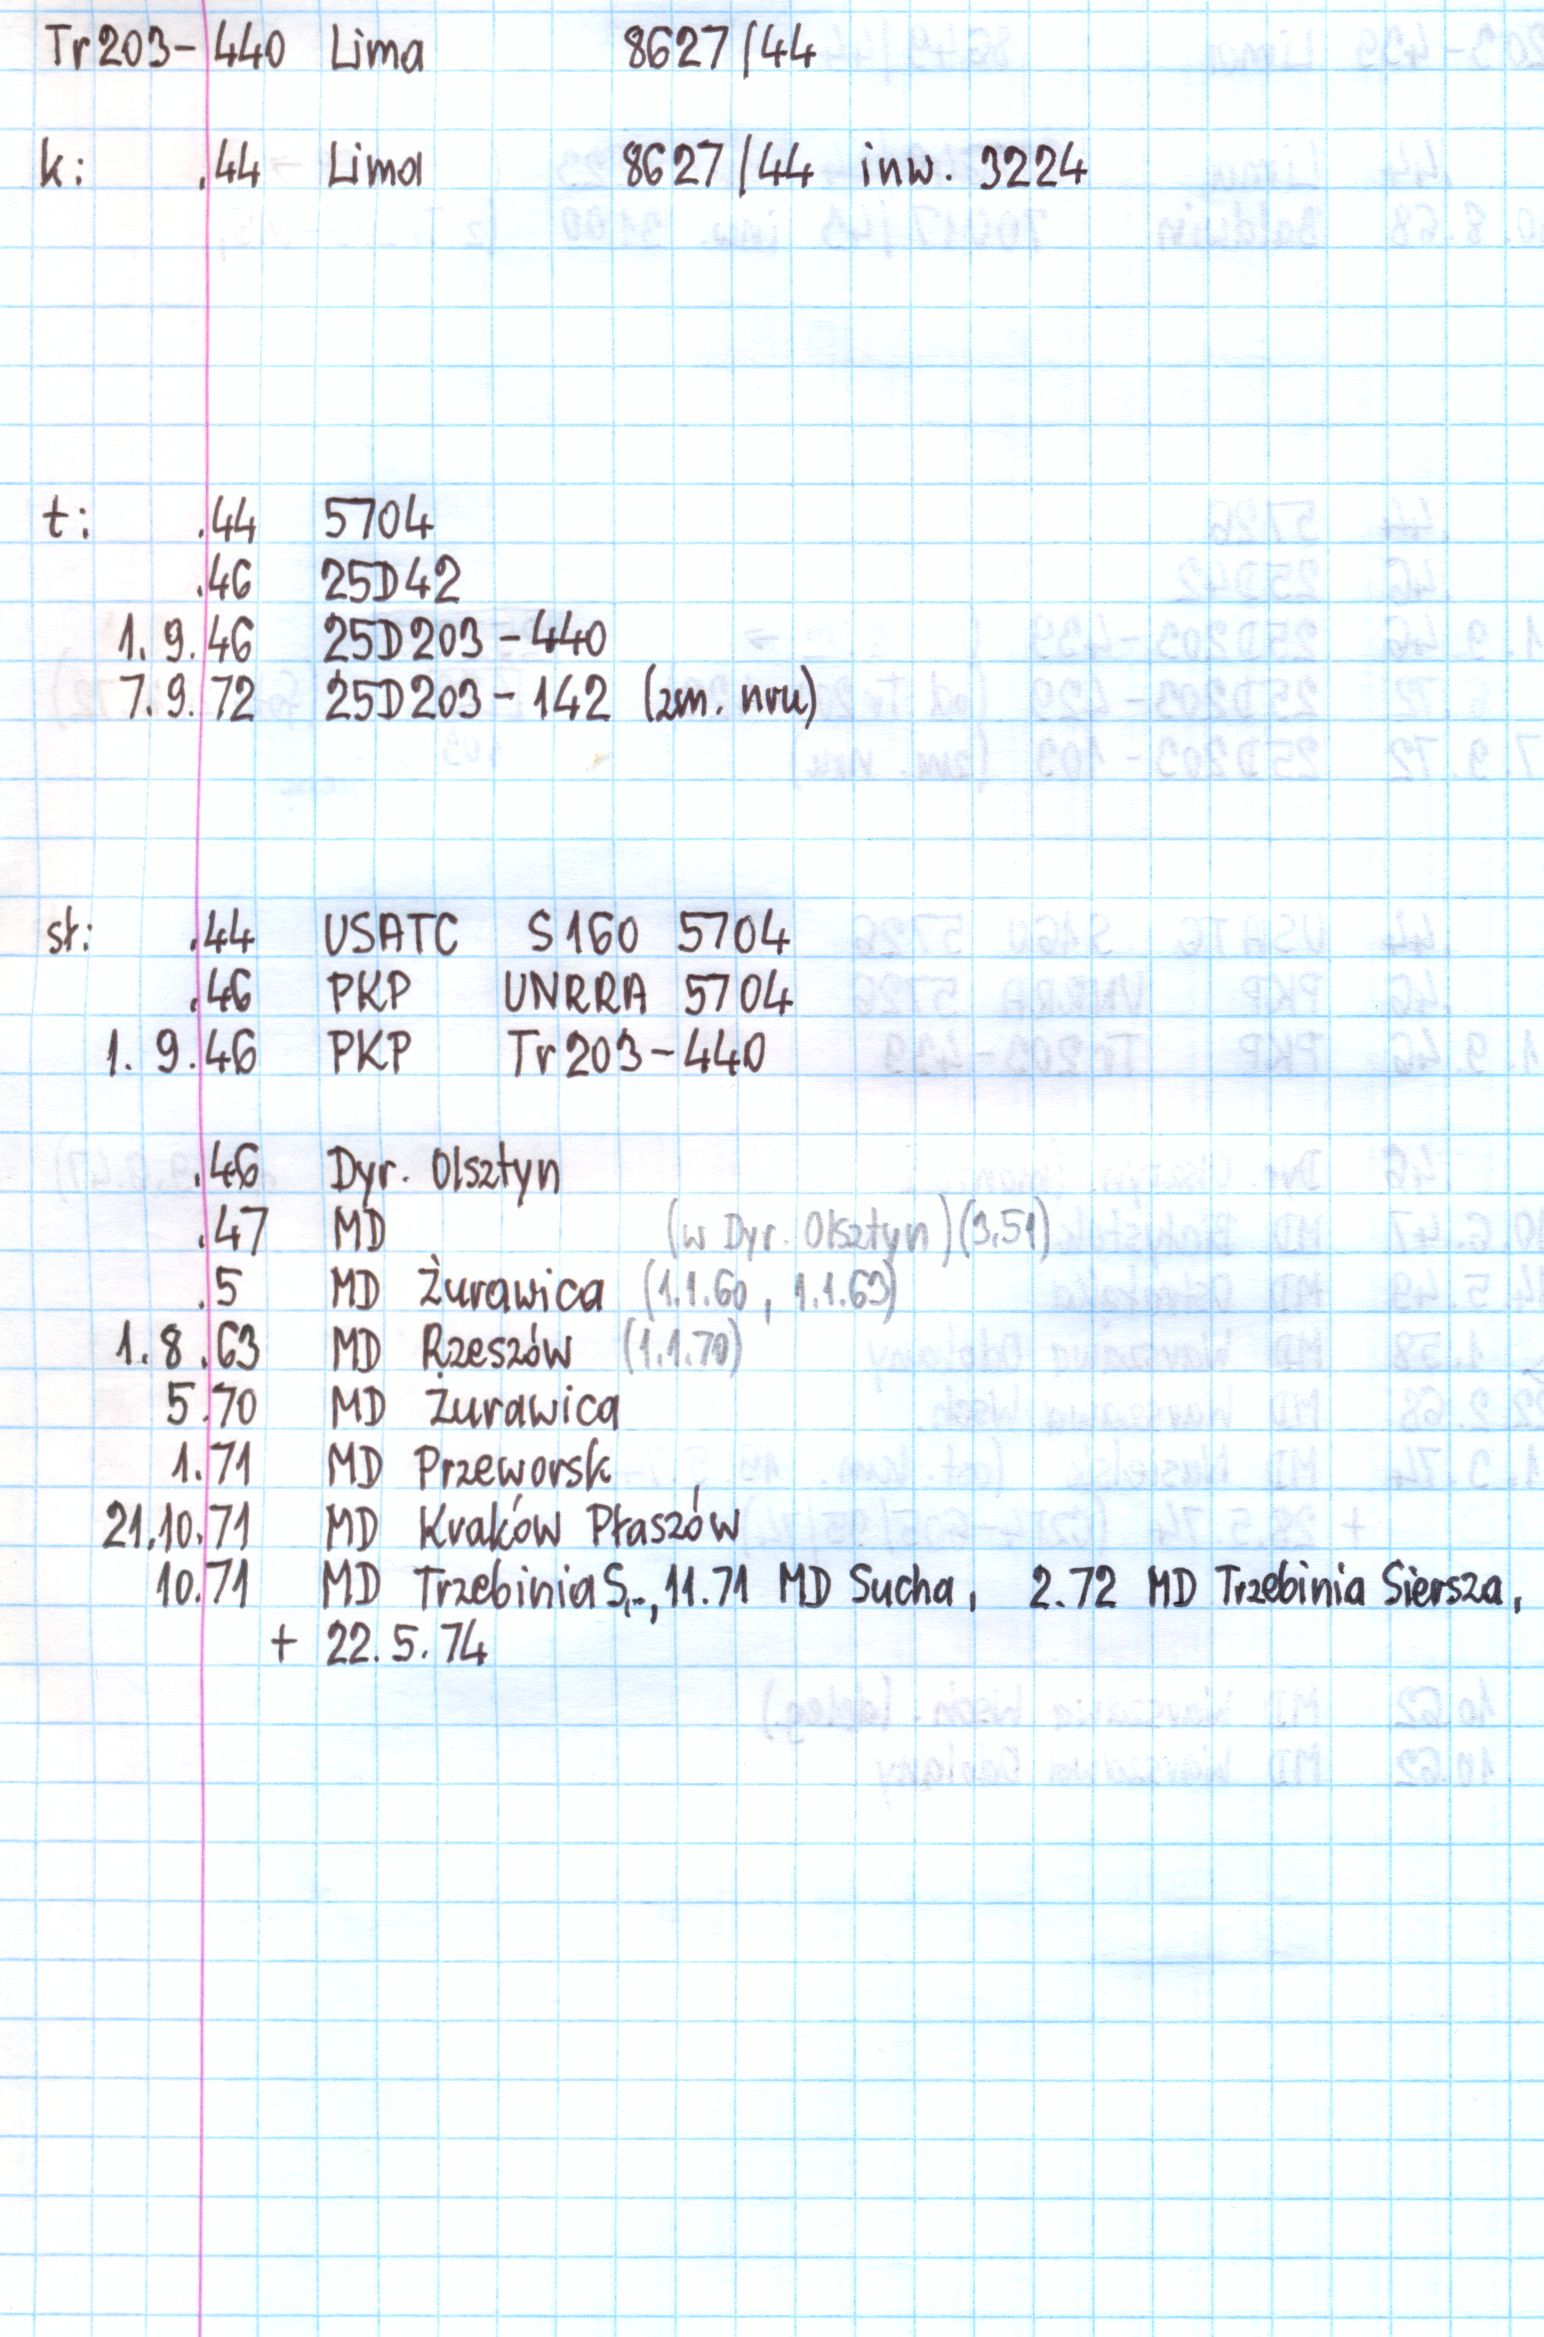 Tr203-440 Lima 8627/44
k: .44 Lima 8627/44 inw. 3224
t: .44 5704
.46 25D42
1.9.46 25D203-440
7.9.72 25D203-142 (zm. nru)
st: .44 USATC S160 5704
.46 PKP UNRRA 5704
1.9.46 PKP Tr203-440
.46 Dyr. Olsztyn
.47 MD (w Dyr. Olsztyn)(3.51)
.5 MD Żurawica (1.1.60, 1.1.63)
1.8.63 MD Rzeszów (1.1.70)
5.70 MD Żurawica
1.71 MD Przeworsk
21.10.71 MD Kraków Płaszów
10.71 MD Trzebinia S..., 11.71 MD Sucha, 2.72 MD Trzebinia Siersza,
+ 22.5.74